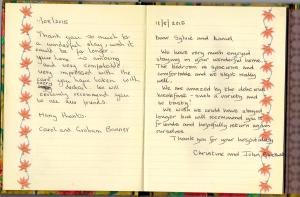 11/08/2015
Thank you so much for
a wonderful stay, wish it
could be for longer.
Your home is amazing
and very comfortable
very impressed with the
care you have taken with
every detail. We will
certainly recommend you
to all our friends.
Many thanks.
Carol and Graham Bonner
12/8/2015
Dear Sylvie and Daniel,
We have very much enjoyed
staying in your wonderful home.
The bedroom is spacious and
comfortable and we slept really
well.
We are amazed by the delicious
breakfast - such a variety and
so tasty!
We wish we could have stayed
longer but will recommend you to
friends and hopefully return again
ourselves.
Thank you for your hospitality
Christine and John